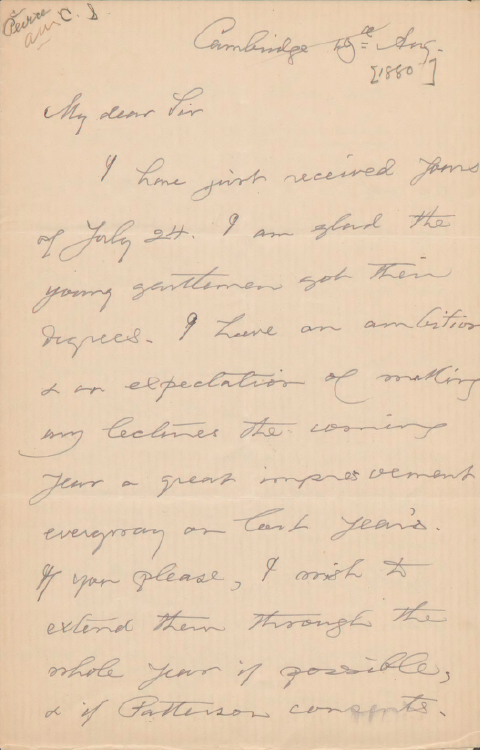 Peirce
C. S.
Cambridge Aug.
[1880]
My dear Sir
I have just received yours
of July 24. I am glad the
young gentlemen got their
degrees. I have an ambition
& an expectation of making
my lectures the coming
year a great improvement
everyway on last year's.
If you please, I wish to
extend them through the
whole year if possible,
& if Patterson consents.